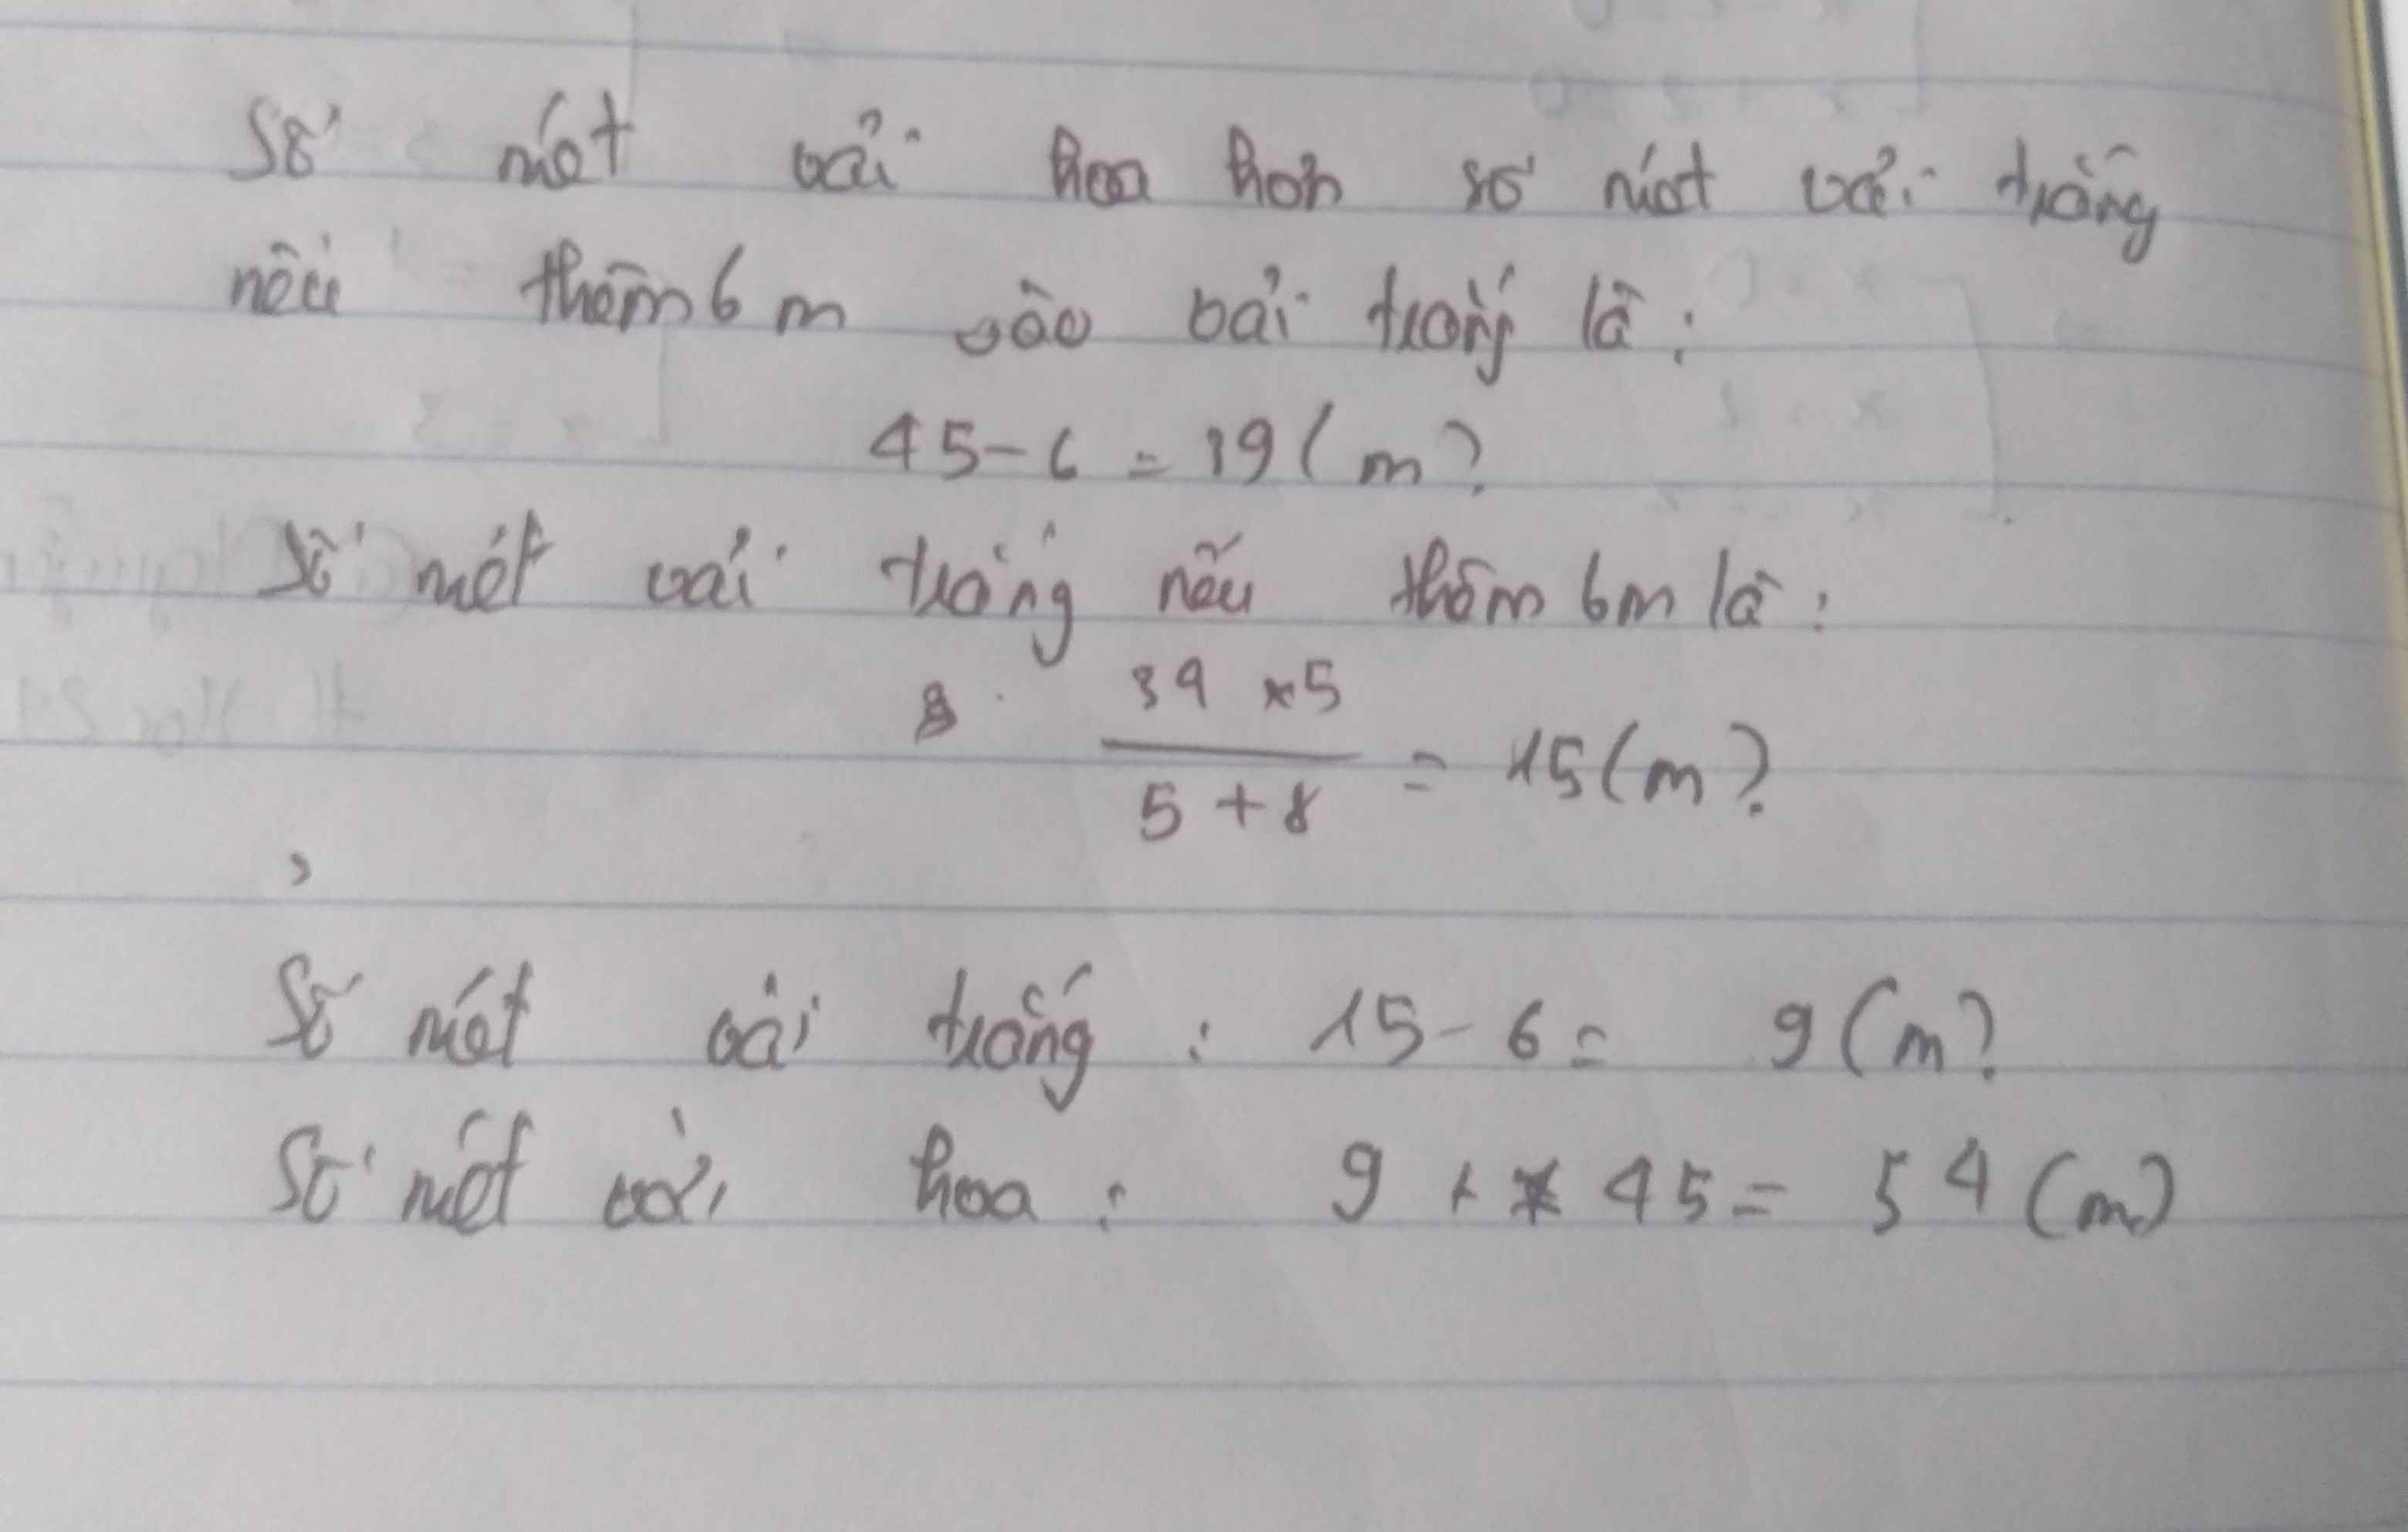 Số mét vải hoa hơn số mét vải trắng
nếu thêm 6 m vào vải trắng là :
45 - 6 = 39 (m)
Số mét vải trắng nếu thêm 6m là :
39 x 5
5 + 8 = 15 (m)
Số mét vải trắng : 15 - 6 = 9 (m)
Số mét vải hoa : 9 + 45 = 54 (m)